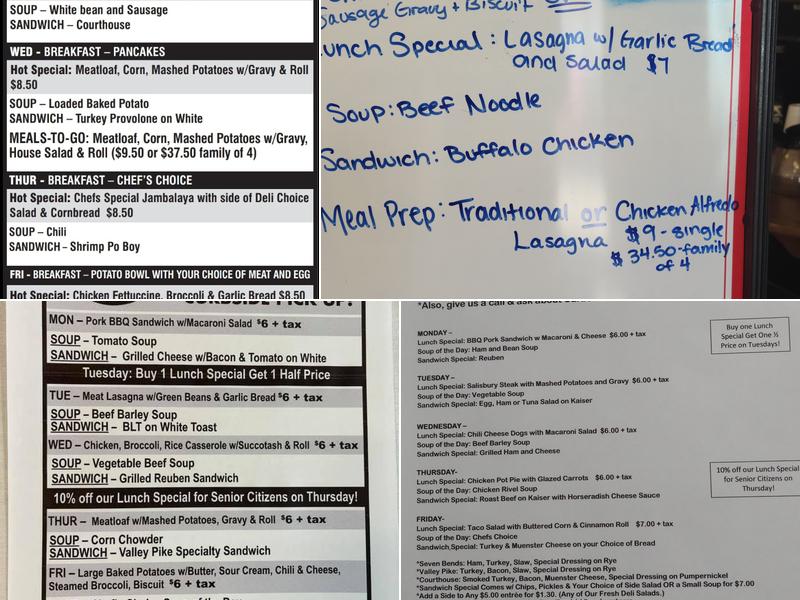 SOUP – White bean and Sausage
SANDWICH – Courthouse
WED - BREAKFAST – PANCAKES
Hot Special: Meatloaf, Corn, Mashed Potatoes w/Gravy & Roll
$8.50
SOUP – Loaded Baked Potato
SANDWICH – Turkey Provolone on White
MEALS-TO-GO: Meatloaf, Corn, Mashed Potatoes w/Gravy,
House Salad & Roll ($9.50 or $37.50 family of 4)
THUR - BREAKFAST – CHEF'S CHOICE
Hot Special: Chefs Special Jambalaya with side of Deli Choice
Salad & Cornbread $8.50
SOUP – Chili
SANDWICH – Shrimp Po Boy
FRI - BREAKFAST – POTATO BOWL WITH YOUR CHOICE OF MEAT AND EGG
Hot Special: Chicken Fettuccine, Broccoli & Garlic Bread $8.50
Sausage Gravy + Biscuit
unch Special: Lasagna w/ Garlic Bread
and Salad $7
Soup: Beef Noodle
Sandwich: Buffalo Chicken
Meal Prep: Traditional or Chicken Alfredo
Lasagna $9 - single
$34.50 - family
of 4
CURBSIDE PICK UP!
MON – Pork BBQ Sandwich w/Macaroni Salad $6 + tax
SOUP – Tomato Soup
SANDWICH – Grilled Cheese w/Bacon & Tomato on White
Tuesday: Buy 1 Lunch Special Get 1 Half Price
TUE – Meat Lasagna w/Green Beans & Garlic Bread $6 + tax
SOUP – Beef Barley Soup
SANDWICH – BLT on White Toast
WED – Chicken, Broccoli, Rice Casserole w/Succotash & Roll $6 + tax
SOUP – Vegetable Beef Soup
SANDWICH – Grilled Reuben Sandwich
10% off our Lunch Special for Senior Citizens on Thursday!
THUR – Meatloaf w/Mashed Potatoes, Gravy & Roll $6 + tax
SOUP – Corn Chowder
SANDWICH – Valley Pike Specialty Sandwich
FRI – Large Baked Potatoes w/Butter, Sour Cream, Chili & Cheese,
Steamed Broccoli, Biscuit $6 + tax
*Also, give us a call & ask about
MONDAY –
Lunch Special: BBQ Pork Sandwich w Macaroni & Cheese $6.00 + tax
Soup of the Day: Ham and Bean Soup
Sandwich Special: Reuben
Buy one Lunch
Special Get One ½
Price on Tuesdays!
TUESDAY –
Lunch Special: Salisbury Steak with Mashed Potatoes and Gravy $6.00 + tax
Soup of the Day: Vegetable Soup
Sandwich Special: Egg, Ham or Tuna Salad on Kaiser
WEDNESDAY –
Lunch Special: Chili Cheese Dogs with Macaroni Salad $6.00 + tax
Soup of the Day: Beef Barley Soup
Sandwich Special: Grilled Ham and Cheese
THURSDAY-
Lunch Special: Chicken Pot Pie with Glazed Carrots $6.00 + tax
Soup of the Day: Chicken Rivel Soup
Sandwich Special: Roast Beef on Kaiser with Horseradish Cheese Sauce
10% off our Lunch Special
for Senior Citizens on
Thursday!
FRIDAY-
Lunch Special: Taco Salad with Buttered Corn & Cinnamon Roll $7.00 + tax
Soup of the Day: Chefs Choice
Sandwich Special: Turkey & Muenster Cheese on your Choice of Bread
*Seven Bends: Ham, Turkey, Slaw, Special Dressing on Rye
*Valley Pike: Turkey, Bacon, Slaw, Special Dressing on Rye
*Courthouse: Smoked Turkey, Bacon, Muenster Cheese, Special Dressing on Pumpernickel
*Sandwich Special Comes w/ Chips, Pickles & Your Choice of Side Salad OR a Small Soup for $7.00
*Add a Side to Any $5.00 entrée for $1.30. (Any of Our Fresh Deli Salads.)